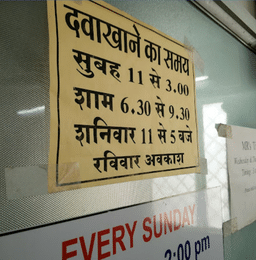 दवाखाने का समय
सुबह 11 से 3.00
शाम 6.30 से 9.30
शनिवार 11 से 5 बजे
रविवार अवकाश
EVERY SUNDAY
2:00 pm